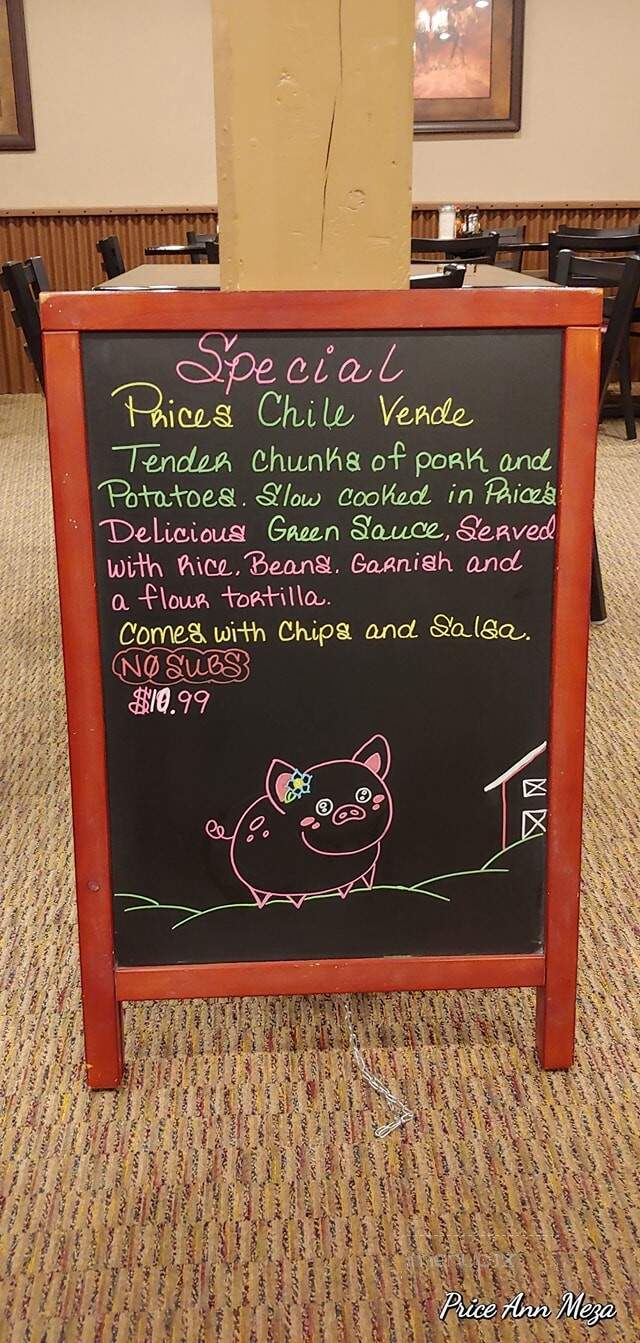 Special
Prices Chile Verde
Tender chunks of pork and
Potatoes. Slow cooked in Price's
Delicious Green Sauce, Served
with Rice, Beans, Garnish and
a flour tortilla.
Comes with Chips and Salsa.
NO SUBS
$10.99
Price Ann Meza